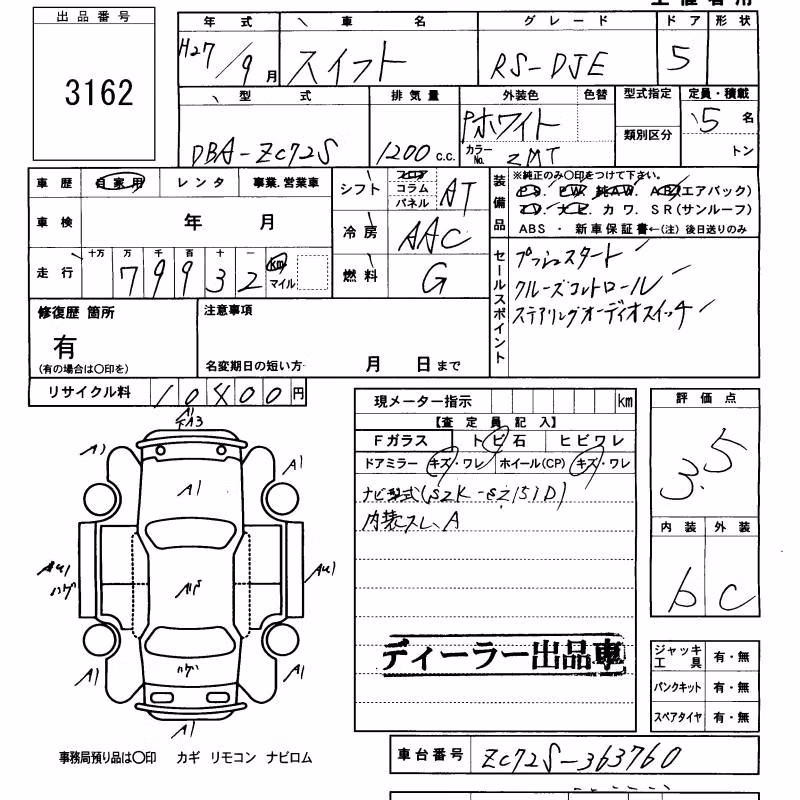 出品番号
3162
年式 車名 グレード ドア 形状
H27/9月 スイフト RS-DJE 5
型式 排気量 外装色 色替 型式指定 定員・積載
DBA-ZC72S 1200c.c. Pホワイト 5名
カラーNo. ZMT 類別区分 トン
車歴 自家用 レンタ 事業.営業車
シフト フロア コラム パネル AT
装備品 ※純正のみ〇印をつけて下さい。
PS. PW. 純AW. ABS(エアバック)
TV. ナビ. カワ. SR(サンルーフ)
ABS ・ 新車保証書←(注) 後日送りのみ
車検 年 月
冷房 AAC
走行 十万 万 千 百 十 一
79932 km マイル
燃料 G
セールスポイント
プッシュスタート
クルーズコントロール
ステアリングオーディオスイッチ
修復歴 箇所
有
(有の場合は〇印を)
注意事項
名変期日の短い方 月 日まで
リサイクル料 10400円
現メーター指示 km
【査定員記入】
Fガラス トビ石 ヒビワレ
ドアミラー キズ・ワレ ホイール(CP) キズ・ワレ
内装スレ、A
ディーラー出品車
評価点
3.5
内装 外装
b C
ジャッキ工具 有・無
パンクキット 有・無
スペアタイヤ 有・無
A1
A1
A1
A1
ハゲ
ハゲ
A1
A1
A1
事務局預り品は〇印 カギ リモコン ナビロム
車台番号 ZC72S-363760